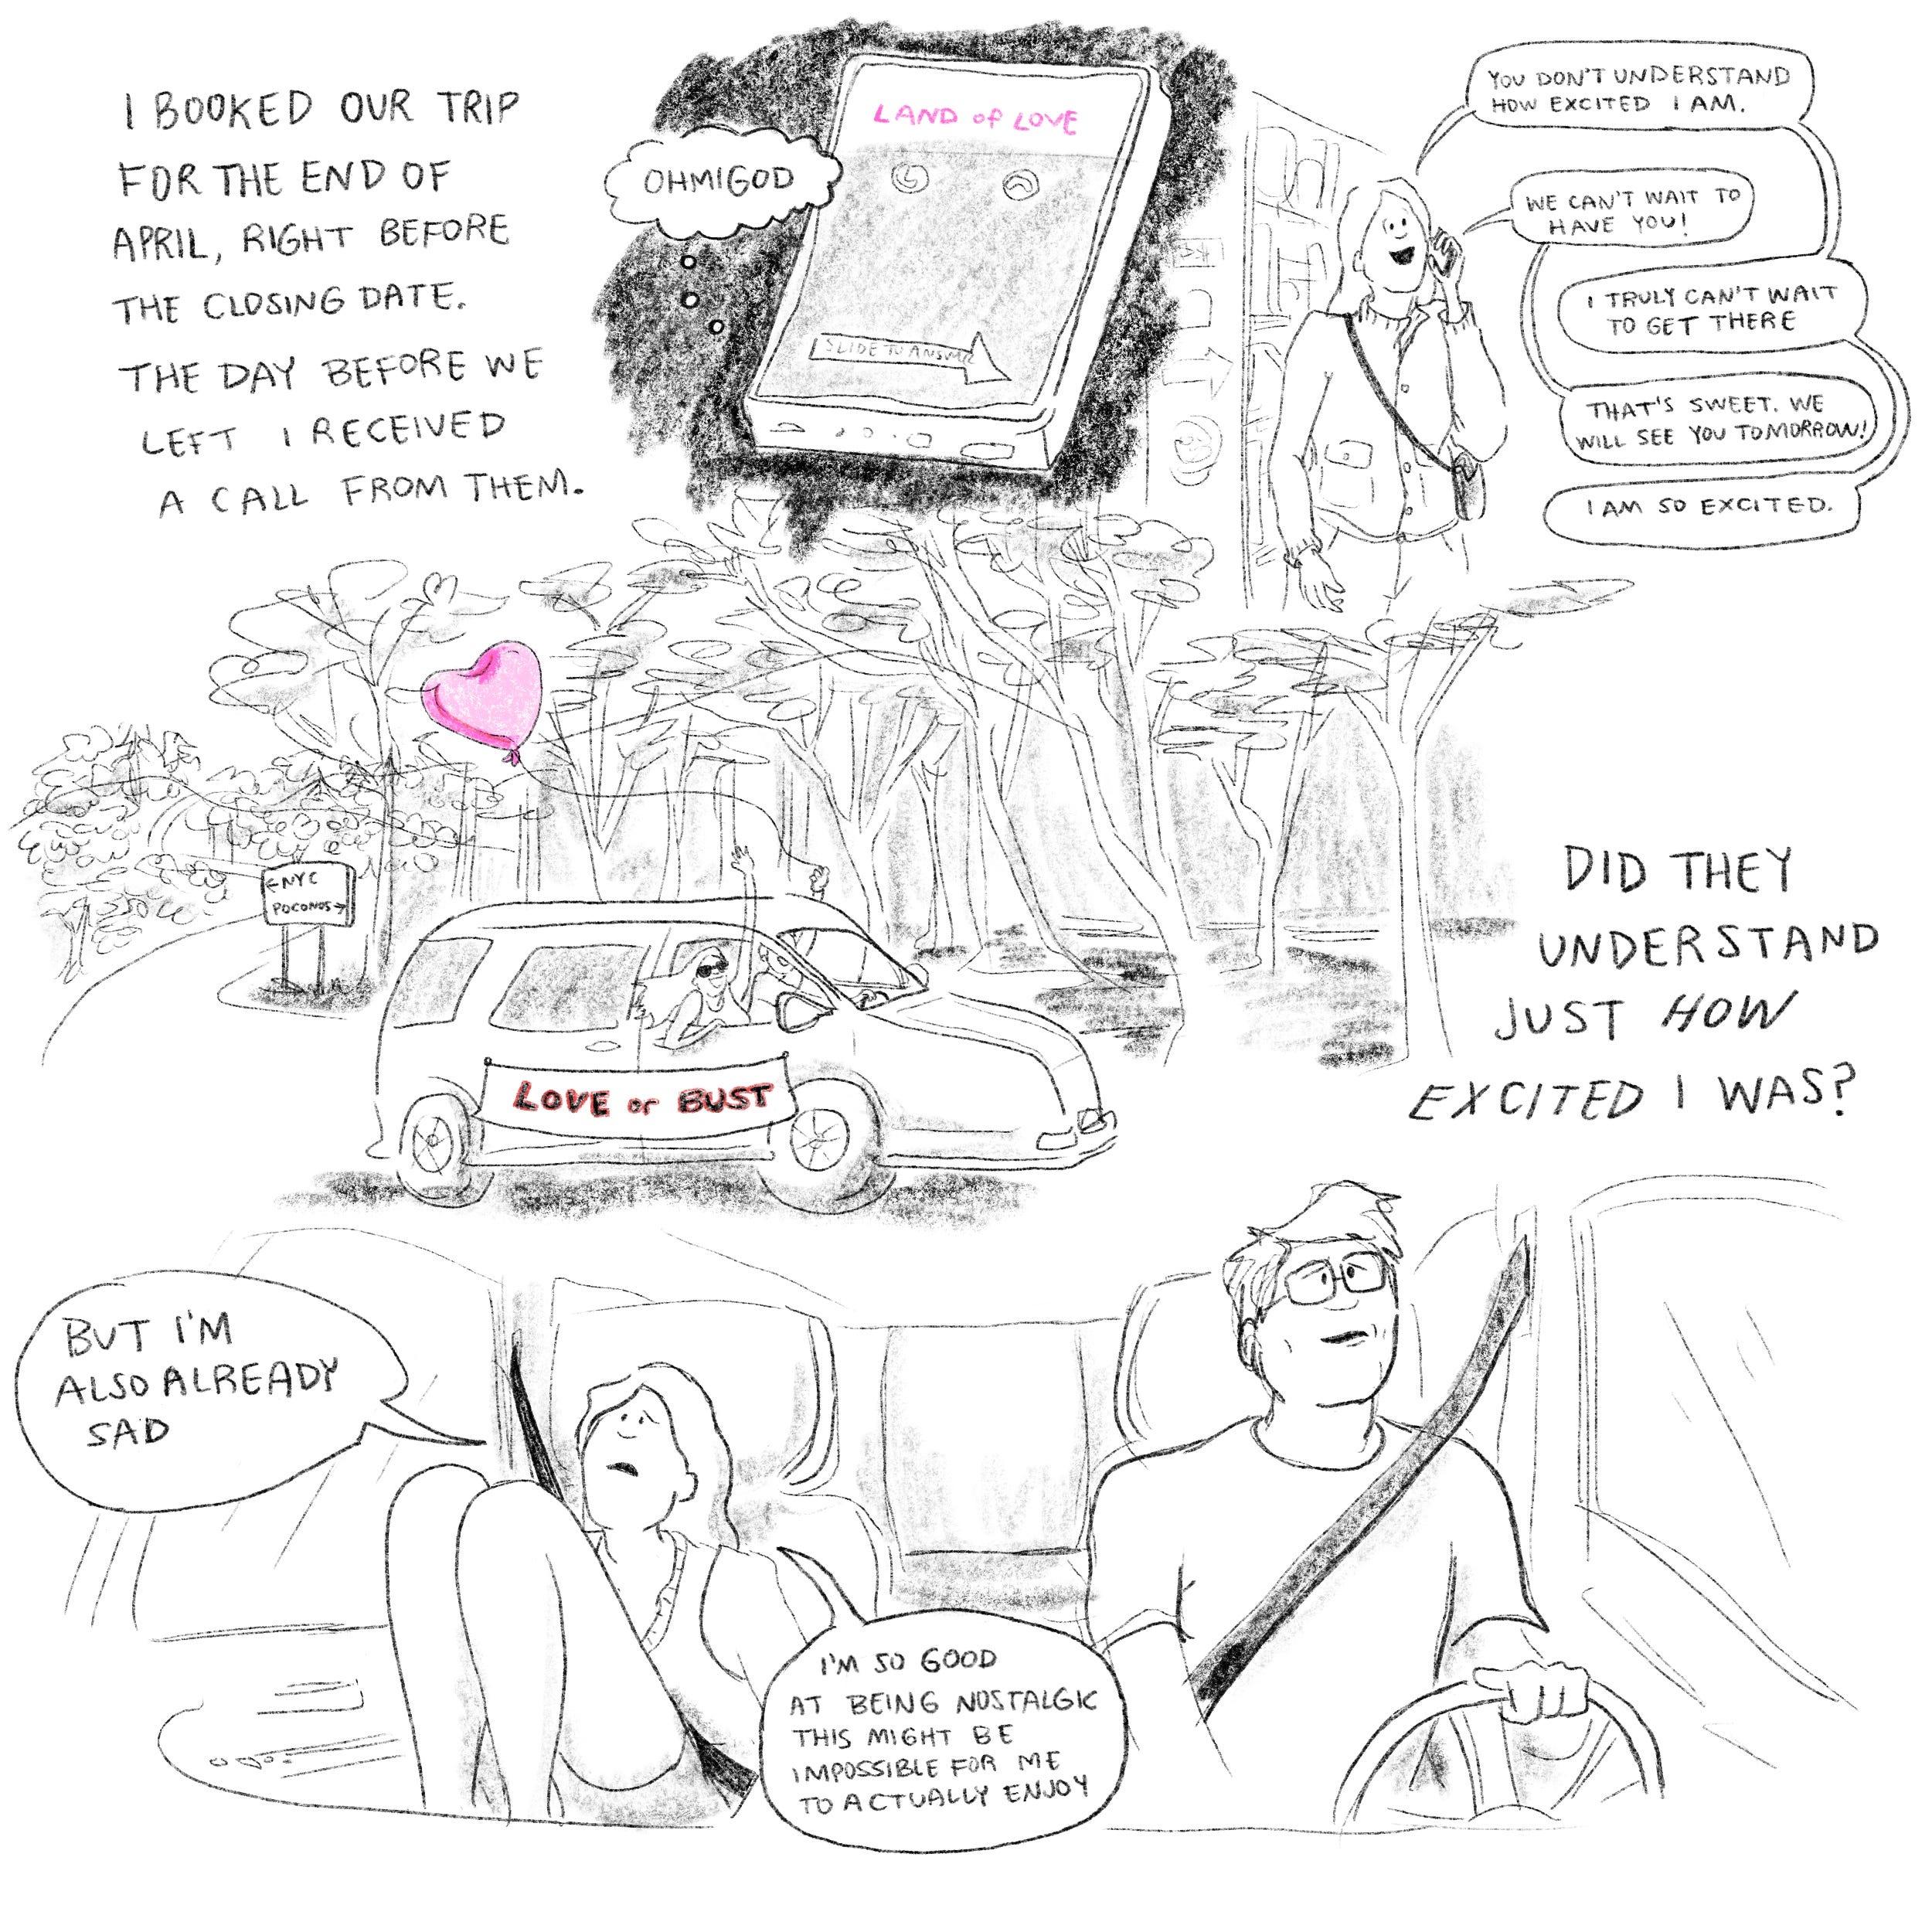 I BOOKED OUR TRIP
FOR THE END OF
APRIL, RIGHT BEFORE
THE CLOSING DATE.
THE DAY BEFORE WE
LEFT I RECEIVED
A CALL FROM THEM.
OHMIGOD
LAND of LOVE
SLIDE TO ANSWER
YOU DON'T UNDERSTAND
HOW EXCITED I AM.
WE CAN'T WAIT TO
HAVE YOU!
I TRULY CAN'T WAIT
TO GET THERE
THAT'S SWEET. WE
WILL SEE YOU TOMORROW!
I AM SO EXCITED.
←NYC
POCONOS→
LOVE or BUST
DID THEY
UNDERSTAND
JUST HOW
EXCITED I WAS?
BUT I'M
ALSO ALREADY
SAD
I'M SO GOOD
AT BEING NOSTALGIC
THIS MIGHT BE
IMPOSSIBLE FOR ME
TO ACTUALLY ENJOY